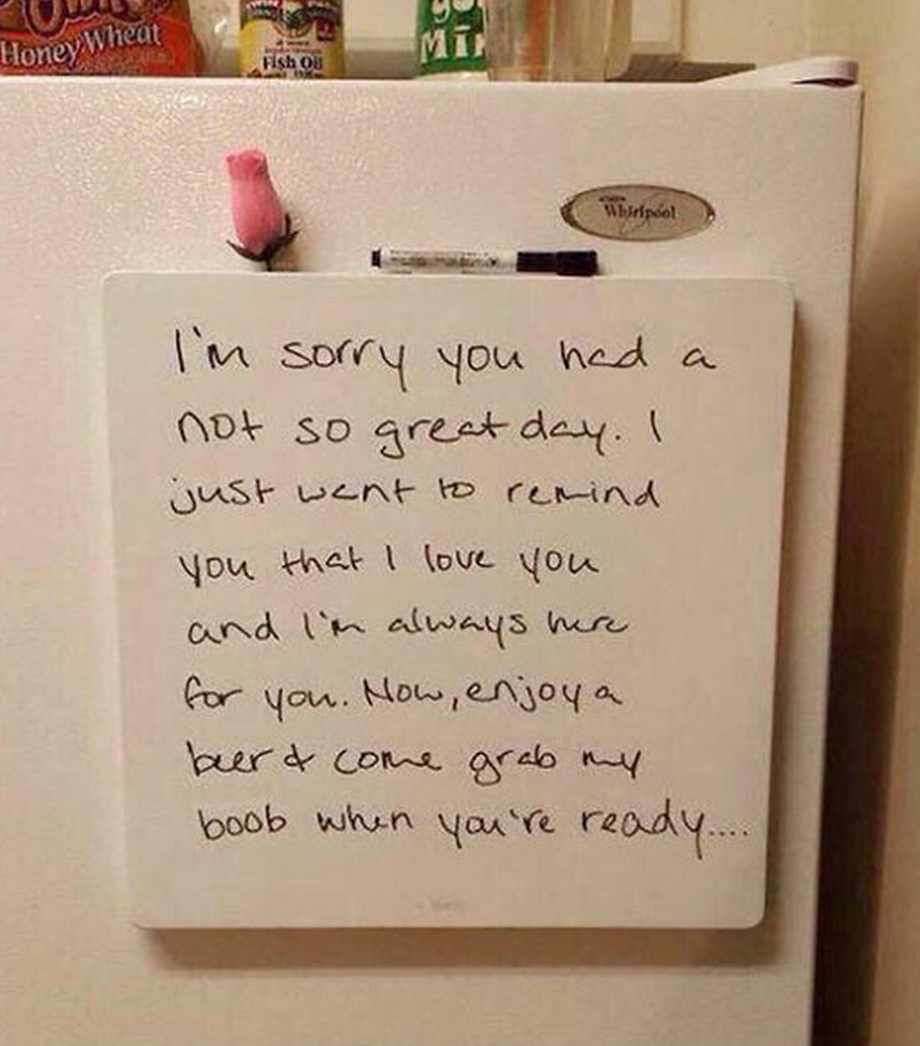 Honey Wheat
Fish Oil
Whirlpool
I'm sorry you had a
not so great day. I
just want to remind
you that I love you
and I'm always here
for you. Now, enjoy a
beer & come grab my
boob when you're ready....